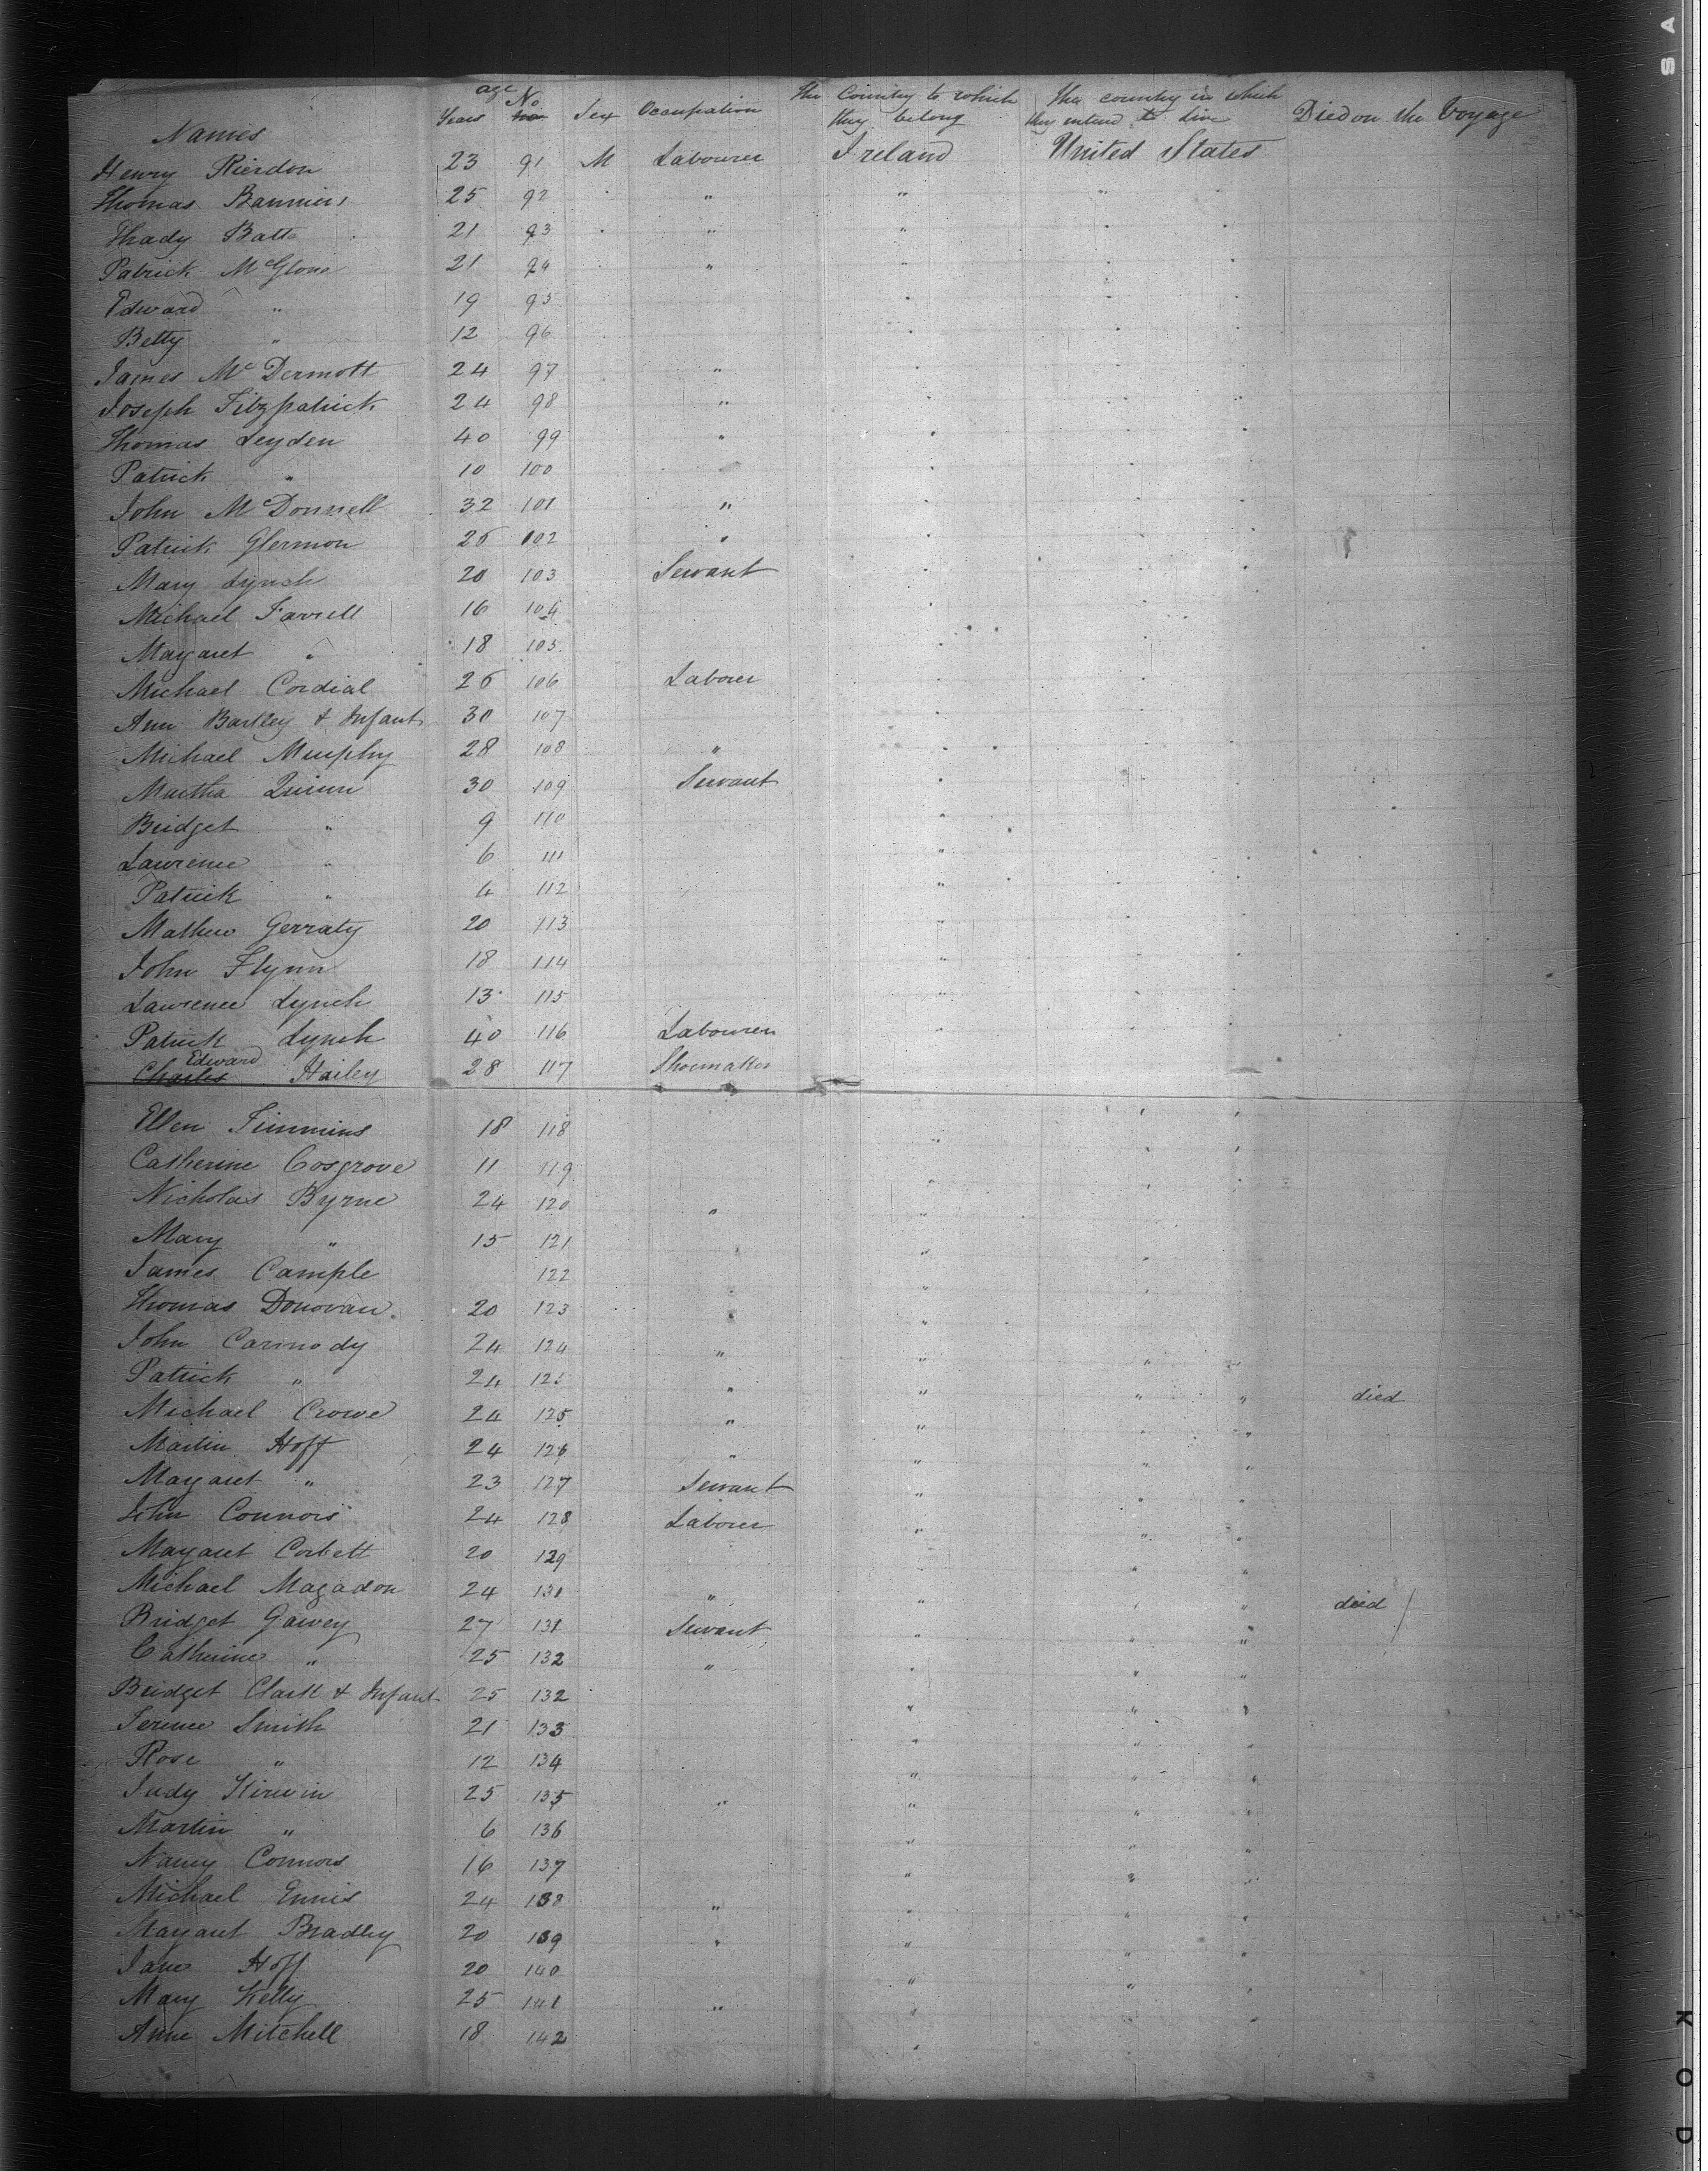 Names age Years No Sex Occupation The Country to which they belong The country in which they intend to live Died on the Voyage
Henry Rierdon 23 91 M Labourer Ireland United States
Thomas 25 92 " " "
Thady Batte 21 93 " "
Patrick McGlone 21 94 " "
Edward " 19 95
Betty " 12 96
James McDermott 24 97 "
Joseph Fitzpatrick 24 98 "
Thomas Leyden 40 99 "
Patrick " 10 100
John McDonnell 32 101 "
Patrick Glermon 25 102 "
Mary Lynch 20 103 Servant
Michael Farrell 16 104
Margaret " 18 105
Michael Cordial 25 106 Laborer
Ann Bartley & Infant 30 107
Michael Murphy 28 108 "
Martha Quinn 30 109 Servant
Bridget " 9 110
Lawrence " 6 111 "
Patrick " 4 112 "
Mathew Gerraty 20 113 "
John Flynn 18 114 "
Lawrence Lynch 13 115 "
Patrick Lynch 40 116 Labourer "
Charles Edward Hailey 28 117 Shoemaker
Ellen Timmins 18 118 "
Catherine Cosgrove 11 119 "
Nicholas Byrne 24 120 " "
Mary " 15 121 "
James Cample 122 "
Thomas Donovan 20 123 "
John Carmody 24 124 " "
Patrick " 24 125 " " " " died
Michael Crowe 24 125 " " " "
Martin Hoff 24 126 " " " "
Margaret " 23 127 Servant " " "
John Connors 24 128 Laborer " " "
Margaret Corbett 20 129 " " "
Michael Magadon 24 130 " " " " died
Bridget Gawey 27 131 Servant " " "
Catherine " 25 132 " " " "
Bridget Clark & Infant 25 132 " " "
Terence Smith 21 133 " " "
Rose " 12 134 " " "
Judy Kirwin 25 135 " " " "
Martin " 6 136 " " "
Nancy Connors 16 137 " " "
Michael Ennis 24 138 " " " "
Margaret Bradley 20 139 " " " "
Jane Hoff 20 140 " " "
Mary Kelly 25 141 " " "
Anne Mitchell 18 142 "